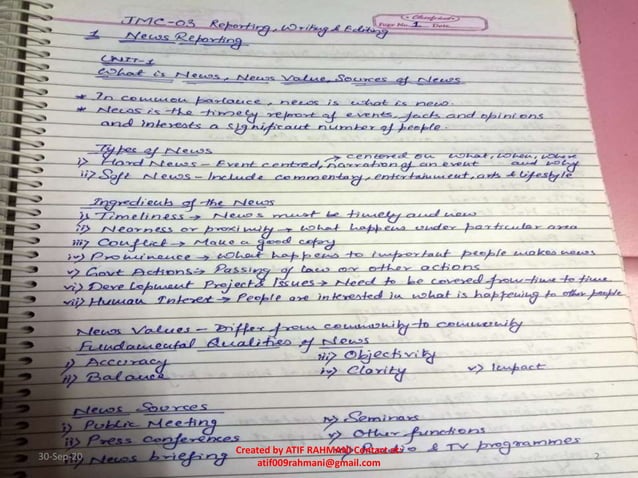 JMC-03 Reporting, Writing & Editing
Classmate
Page No. 1 Date
1 News Reporting
UNIT-1
What is News, News Value, Sources of News
* In common parlance, news is what is new.
* News is the timely report of events, facts and opinions
and interests a significant number of people.
Types of News
→ centered on what, when, where
i) Hard News – Event centred, narration of an event and why
ii) Soft News – Include commentary, entertainment, arts & lifestyle
Ingredients of the News
i) Timeliness → News must be timely and new
ii) Nearness or proximity → what happens under particular area
iii) Conflict → Make a good copy
iv) Prominence → what happens to important people makes news
v) Govt Actions → Passing of law or other actions
vi) Development Projects Issues → Need to be covered from time to time
vii) Human Interest → People are interested in what is happening to other people
News Values – Differ from community to community
Fundamental Qualities of News
i) Accuracy iii) Objectivity
ii) Balance iv) Clarity v) Impact
News Sources
i) Public Meeting iv) Seminars
ii) Press conferences v) Other functions
iii) News briefing Radio & TV programmes
30-Sep-20
Created by ATIF RAHMANI Contact at:
atif009rahmani@gmail.com
2